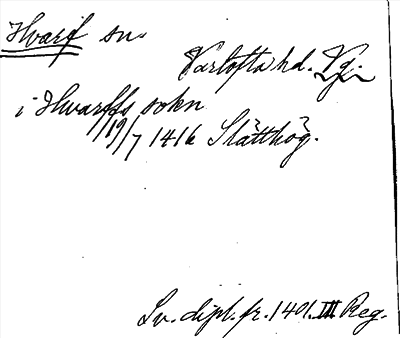 Hvarf sn.
Vartofta hd. Vg.
i Hwarffs sokn
19/7 1416 Slätthög.
Sv. dipl. fr. 1401. III Reg.